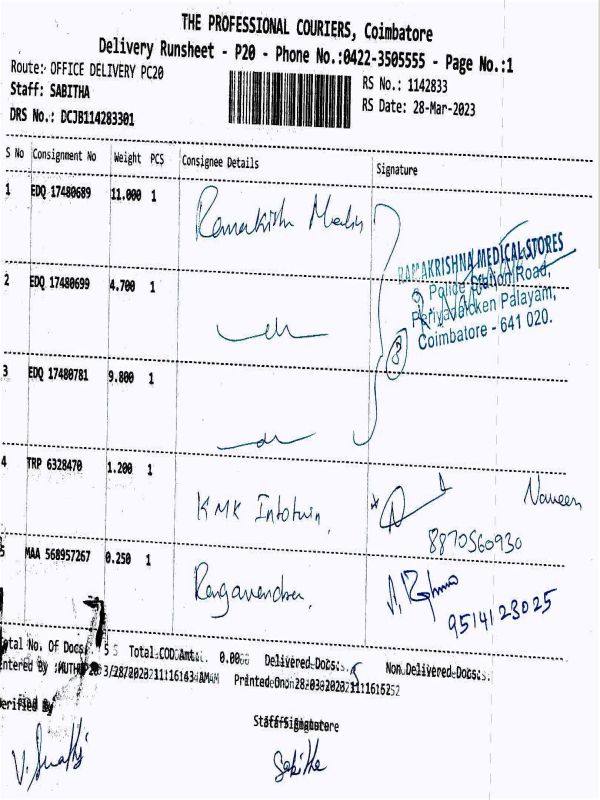 THE PROFESSIONAL COURIERS, Coimbatore
Delivery Runsheet - P20 - Phone No.:0422-3505555 - Page No.:1
Route: OFFICE DELIVERY PC20
RS No.: 1142833
Staff: SABITHA
RS Date: 28-Mar-2023
DRS No.: DCJB114283301
S No Consignment No Weight PCS Consignee Details Signature
1 EDQ 17480689 11.000 1
RAMAKRISHNA MEDICAL STORES
Police Station Road,
Palayam,
Coimbatore - 641 020.
2 EDQ 17480699 4.700 1
8
3 EDQ 17480781 9.800 1
4 TRP 6328470 1.200 1
KMK Naveen
8870560930
5 MAA 568957267 0.250 1
Ragavendra
9514123025
otal No. Of Docs 5 Total COD Amt.: 0.00 Delivered Docs: 5 Non Delivered Docs:
ntered By :MUTHU 3/28/2023 11:16:43 AM Printed On 28-03-2023 11:16:52
erified By
Staff Signature
Sabitha